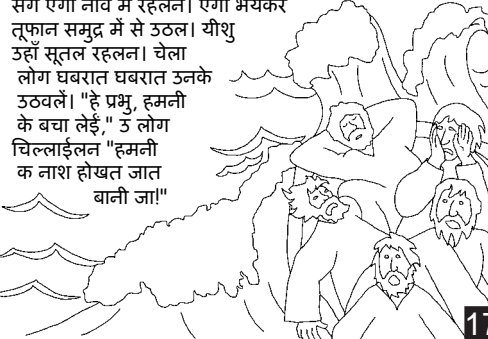 संग एगो नाव में रहलन। एगो भयंकर
तूफान समुद्र में से उठल। यीशु
उहाँ सूतल रहलन। चेला
लोग घबरात घबरात उनके
उठवलें। "हे प्रभु, हमनी
के बचा लेईं," उ लोग
चिल्लाईलन "हमनी
क नाश होखत जात
बानी जा!"
17